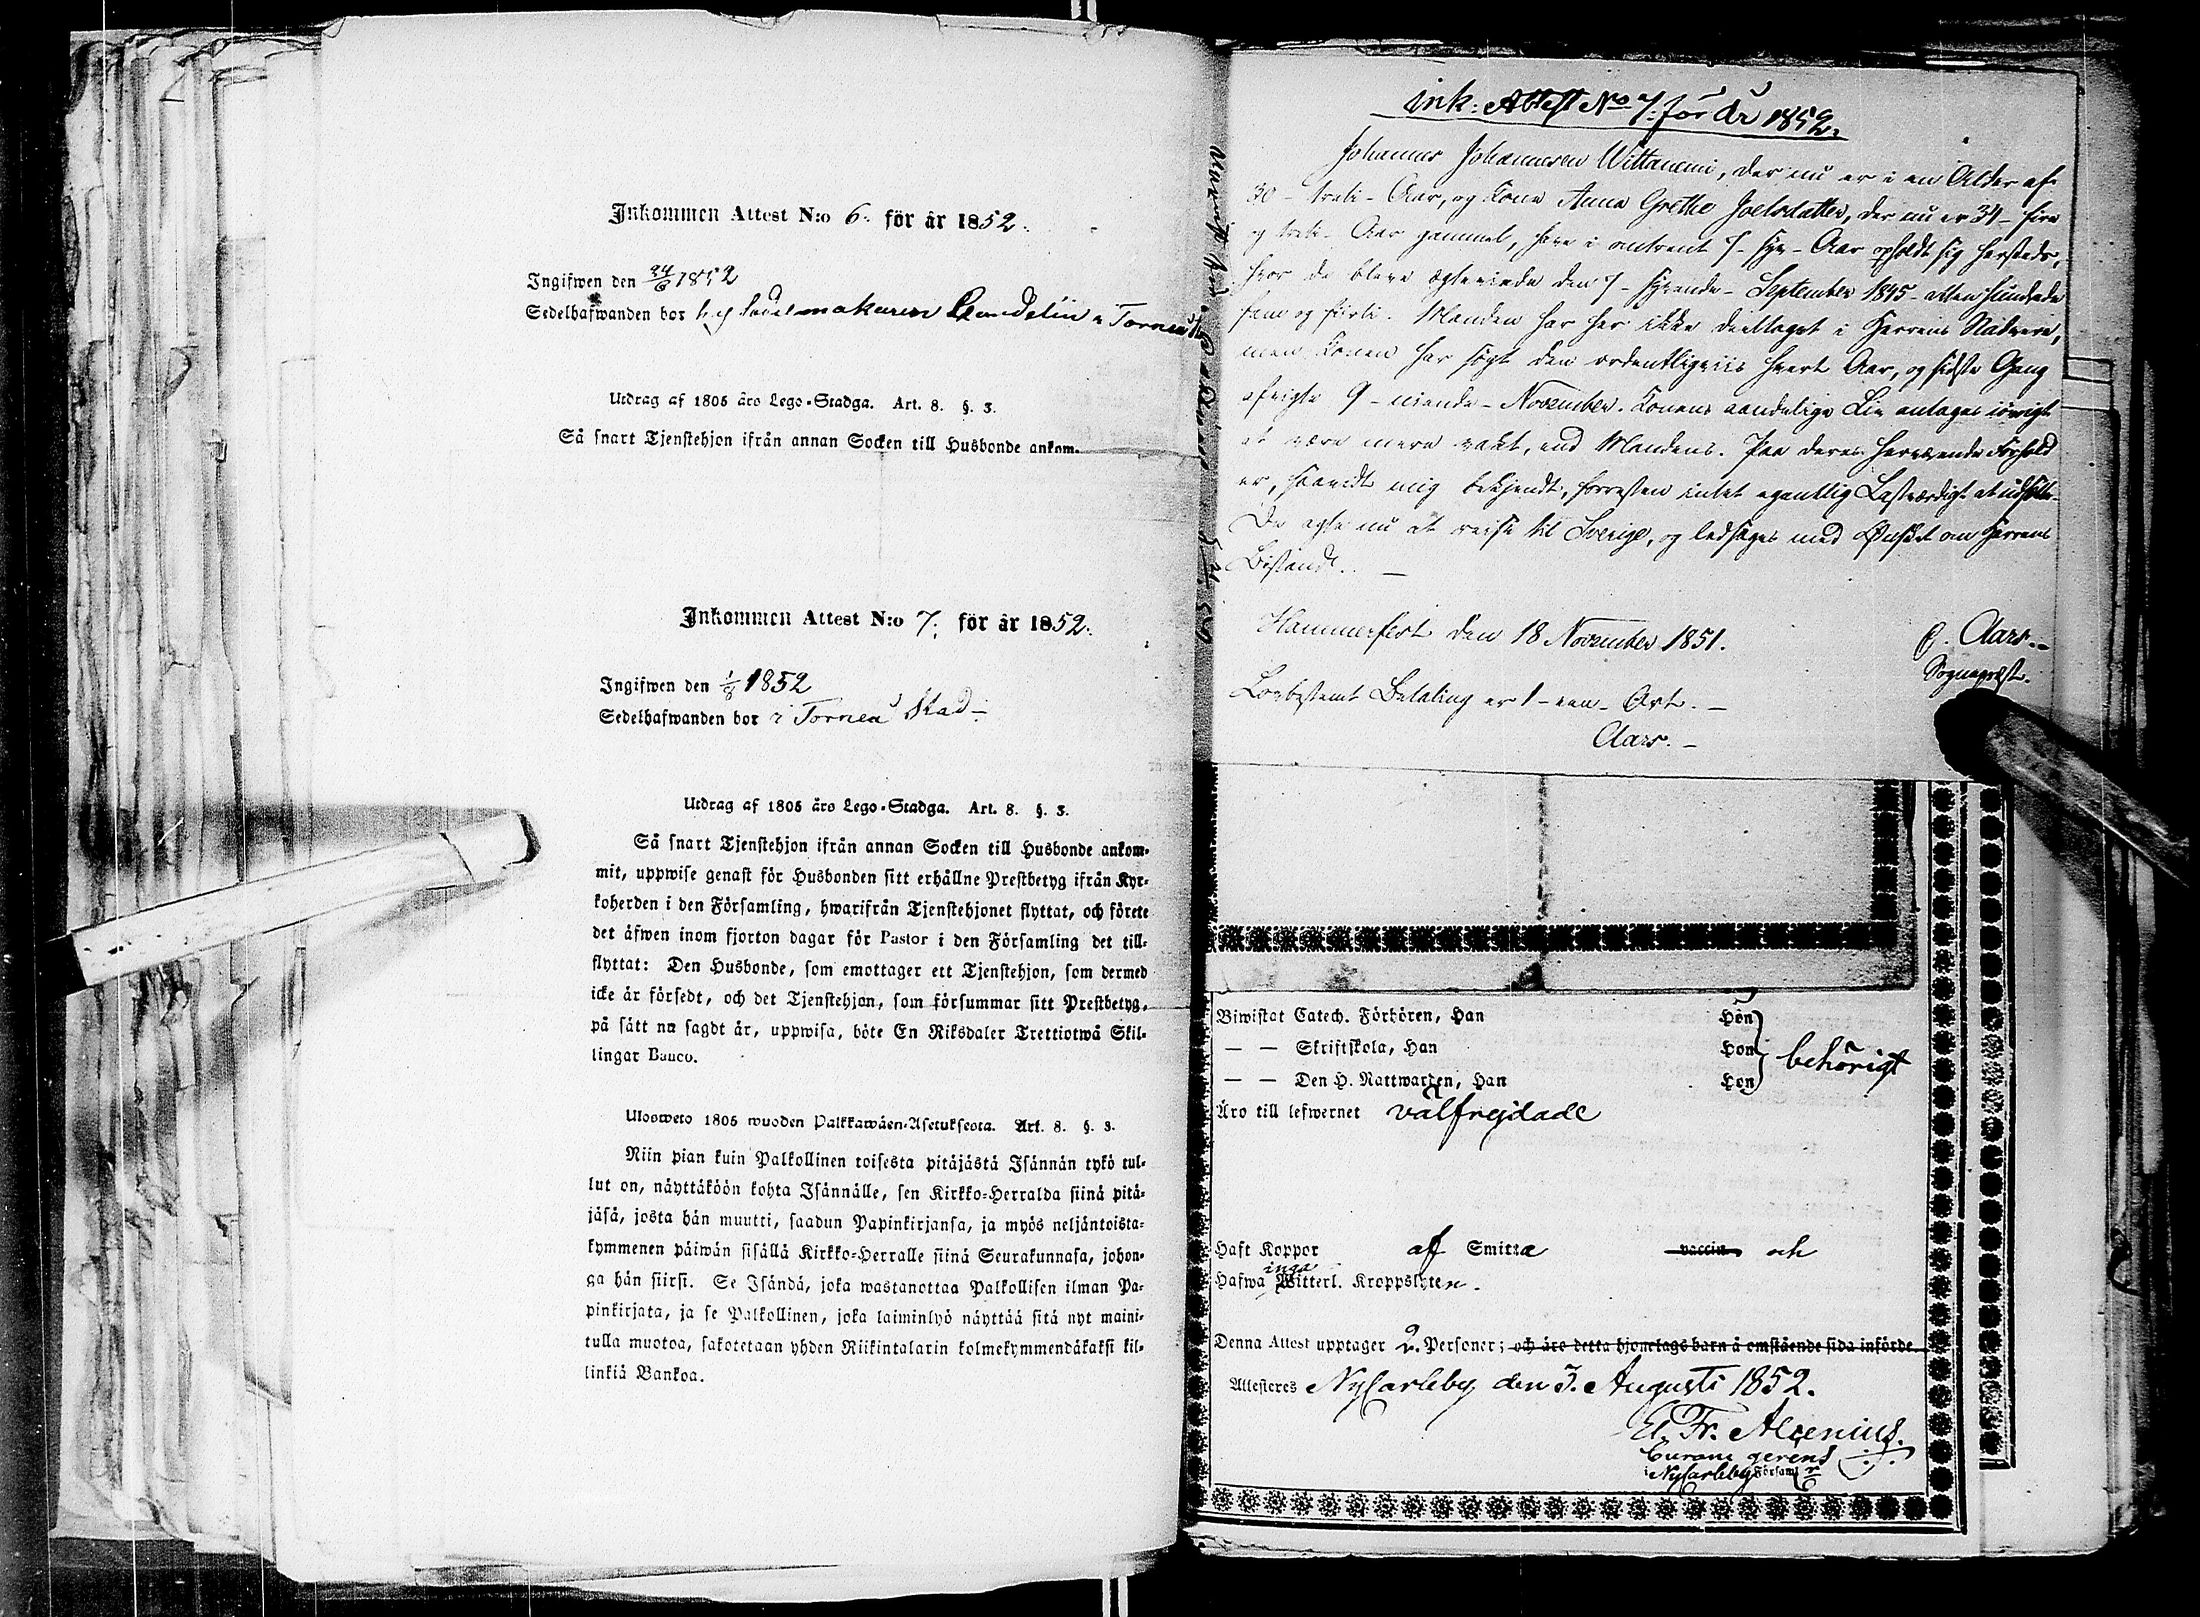 Inkommen Attest N:o 6. för år 1852.
Ingifwen den 24/6 1852
Sedelhafwanden bor hos sadelmakaren Landelin i Torneå
Utdrag af 1805 års Lego-Stadga. Art. 8. §. 3.
Så snart Tjenstehjon ifrån annan Socken till Husbonde ankom-
Inkommen Attest N:o 7. för år 1852.
Ingifwen den 1/8 1852
Sedelhafwanden bor i Torneå Stad
Utdrag af 1805 års Lego-Stadga. Art. 8. §. 3.
Så snart Tjenstehjon ifrån annan Socken till Husbonde ankom-
mit, uppwise genast för Husbonden sitt erhållne Prestbetyg ifrån Kyr-
koherden i den Församling, hwarifrån Tjenstehjonet flyttat, och förete
det äfwen inom fjorton dagar för Pastor i den Församling det till-
flyttat: Den Husbonde, som emottager ett Tjenstehjon, som dermed
icke är försedt, och det Tjenstehjon, som försummar sitt Prestbetyg,
på sätt nu sagdt är, uppwisa, böte En Riksdaler Trettiotwå Skil-
lingar Banco.
Ulosweto 1805 wuoden Palkkawäen-Asetuksesta. Art. 8. §. 3.
Niin pian kuin Palkollinen toisesta pitäjästä Isännän tykö tul-
lut on, näyttäköön kohta Isännälle, sen Kirkko-Herralda siinä pitä-
jäsä, josta hän muutti, saadun Papinkirjansa, ja myös neljäntoista-
kymmenen päiwän sisällä Kirkko-Herralle siinä Seurakunnasa, johon-
ga hän siirsi. Se Isändä, joka wastanottaa Palkollisen ilman Pa-
pinkirjata, ja se Palkollinen, joka laiminlyö näyttää sitä nyt maini-
tulla muotoa, sakotetaan yhden Riikintalarin kolmekymmendäkaksi kil-
linkiä Bankoa.
ink: Attest No 7: för år 1852.
Johannes Johannesen Wittaniemi, der nu er i en Alder af
30 - treti - Aar, og Kone Anna Grethe Joelsdatter, der nu er 34 - fire
og treti - Aar gammel, have i omtrent 7 - syv - Aar opholdt sig hersteds,
hvor de bleve ægteviede den 7 - syvende - September 1845 - atten hundrede
fem og førti. Manden har her ikke deeltaget i Herrens Nadvere,
men Konen har søgt den ordentligviis hvert Aar, og sidste Gang
afvigte 9 - niende - November. Konens aandelige Liv antages iøvrigt
at være mere vakt, end Mandens. Paa deres herværende Forhold
er, saavidt mig bekjendt, forresten intet egentlig Lastværdigt at udsætte.
De agte nu at reise til Sverige, og ledsages med Ønsket om Herrens
Bistand.
Hammerfest den 18 November 1851.
Aars.
Sognepræst.
Lovbestemt Betaling er 1 - een - Ort.
Aars.
Biwistat Catech. Förhören, Han Hon
— — Skriftskola, Han Hon behörigt
— — Den H. Nattwarden, Han Hon
Äro till lefwernet välfrejdade
Haft Koppor af Smitta vaccin. och
Hafwa inga Witterl. Kroppslyten.
Denna Attest upptager 2. Personer; och äro detta hjonelags barn å omstående sida införde.
Attesteres NyCarleby den 3. Augusti 1852.
El. Fr. Alcenius.
Curam gerens
i NyCarleby Församl.